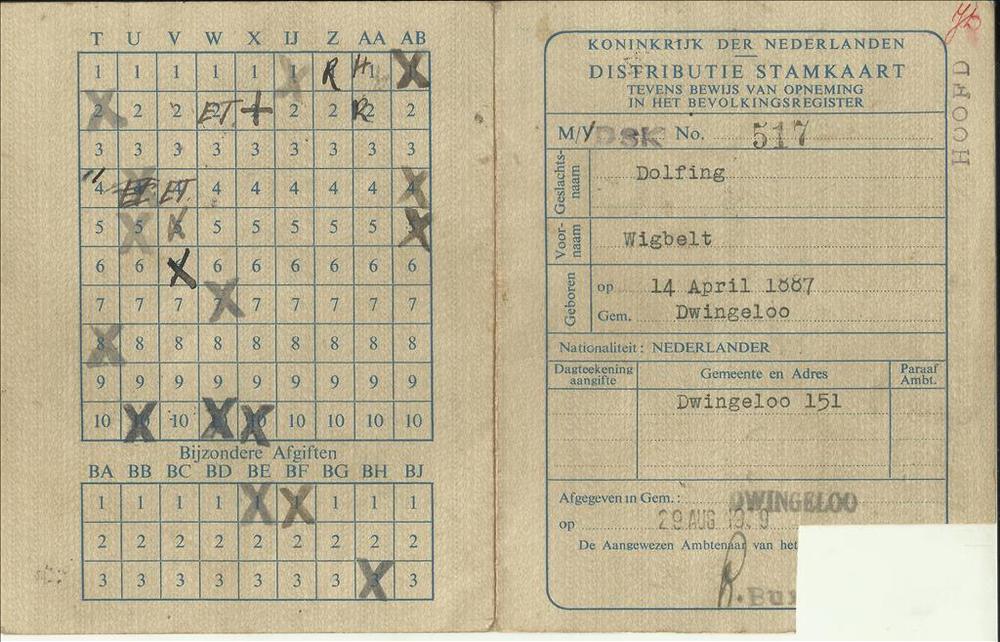 T U V W X IJ Z AA AB
1 1 1 1 1 1 R H1 1
2 2 2 ET. 2 2 2 R2 2
3 3 3 3 3 3 3 3 3
4 ET 4 4 4 4 4 4
5 5 5 5 5 5 5 5 5
6 6 6 6 6 6 6 6
7 7 7 7 7 7 7 7 7
8 8 8 8 8 8 8 8 8
9 9 9 9 9 9 9 9 9
10 10 10 10 10 10 10 10 10
Bijzondere Afgiften
BA BB BC BD BE BF BG BH BJ
1 1 1 1 1 1 1 1 1
2 2 2 2 2 2 2 2 2
3 3 3 3 3 3 3 3 3
KONINKRIJK DER NEDERLANDEN
DISTRIBUTIE STAMKAART
TEVENS BEWIJS VAN OPNEMING
IN HET BEVOLKINGSREGISTER
M/V DSK No. 517
HOOFD
Geslachts-naam Dolfing
Voor-naam Wigbelt
Geboren op 14 April 1887
Gem. Dwingeloo
Nationaliteit: NEDERLANDER
Dagteekening aangifte Gemeente en Adres Paraaf Ambt.
Dwingeloo 151
Afgegeven in Gem.: DWINGELOO
op 29 AUG 19 9
De Aangewezen Ambtenaar van het
R. Bu